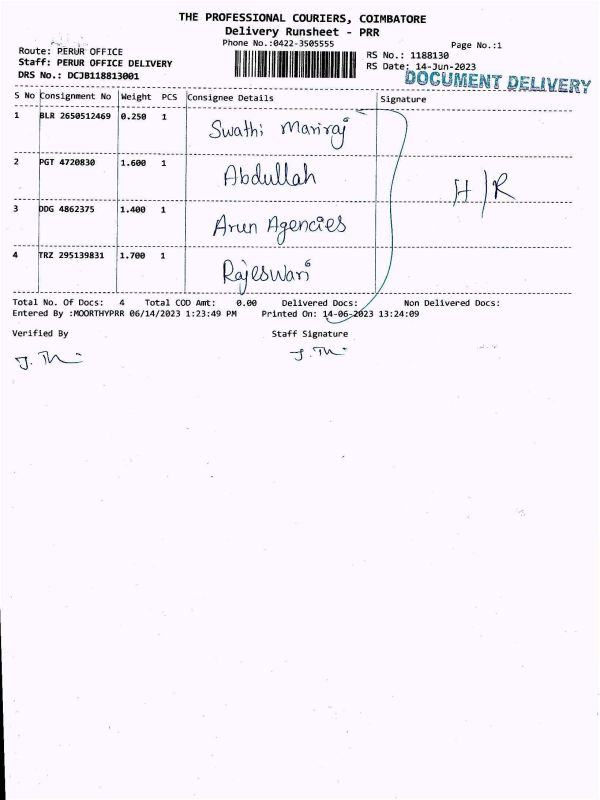 THE PROFESSIONAL COURIERS, COIMBATORE
Delivery Runsheet - PRR
Phone No.:0422-3505555
Page No.:1
Route: PERUR OFFICE
RS No.: 1188130
Staff: PERUR OFFICE DELIVERY
RS Date: 14-Jun-2023
DRS No.: DCJB118813001
DOCUMENT DELIVERY
S No Consignment No Weight PCS Consignee Details Signature
1 BLR 2650512469 0.250 1 Swathi Mariraj
2 PGT 4720830 1.600 1 Abdullah
H/R
3 DDG 4862375 1.400 1 Arun Agencies
4 TRZ 295139831 1.700 1 Rajeswari
Total No. Of Docs: 4 Total COD Amt: 0.00 Delivered Docs: Non Delivered Docs:
Entered By :MOORTHYPRR 06/14/2023 1:23:49 PM Printed On: 14-06-2023 13:24:09
Verified By Staff Signature